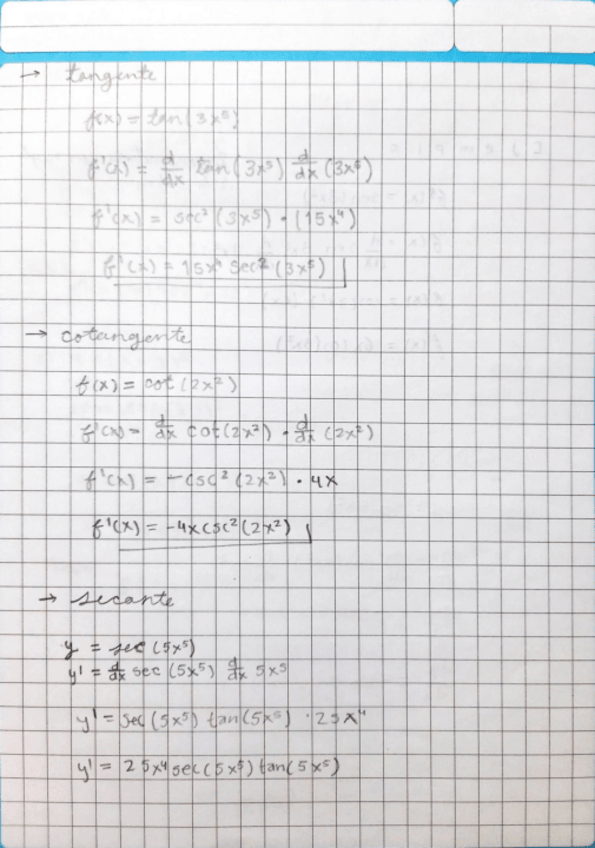 → tangente
f(x) = tan(3x⁵)
f'(x) = d/dx tan(3x⁵) d/dx (3x⁵)
f'(x) = sec²(3x⁵) · (15x⁴)
f'(x) = 15x⁴ sec²(3x⁵)
→ cotangente
f(x) = cot(2x²)
f'(x) = d/dx cot(2x²) · d/dx (2x²)
f'(x) = -csc²(2x²) · 4x
f'(x) = -4x csc²(2x²)
→ secante
y = sec(5x⁵)
y' = d/dx sec(5x⁵) d/dx 5x⁵
y' = sec(5x⁵) tan(5x⁵) · 25x⁴
y' = 25x⁴ sec(5x⁵) tan(5x⁵)